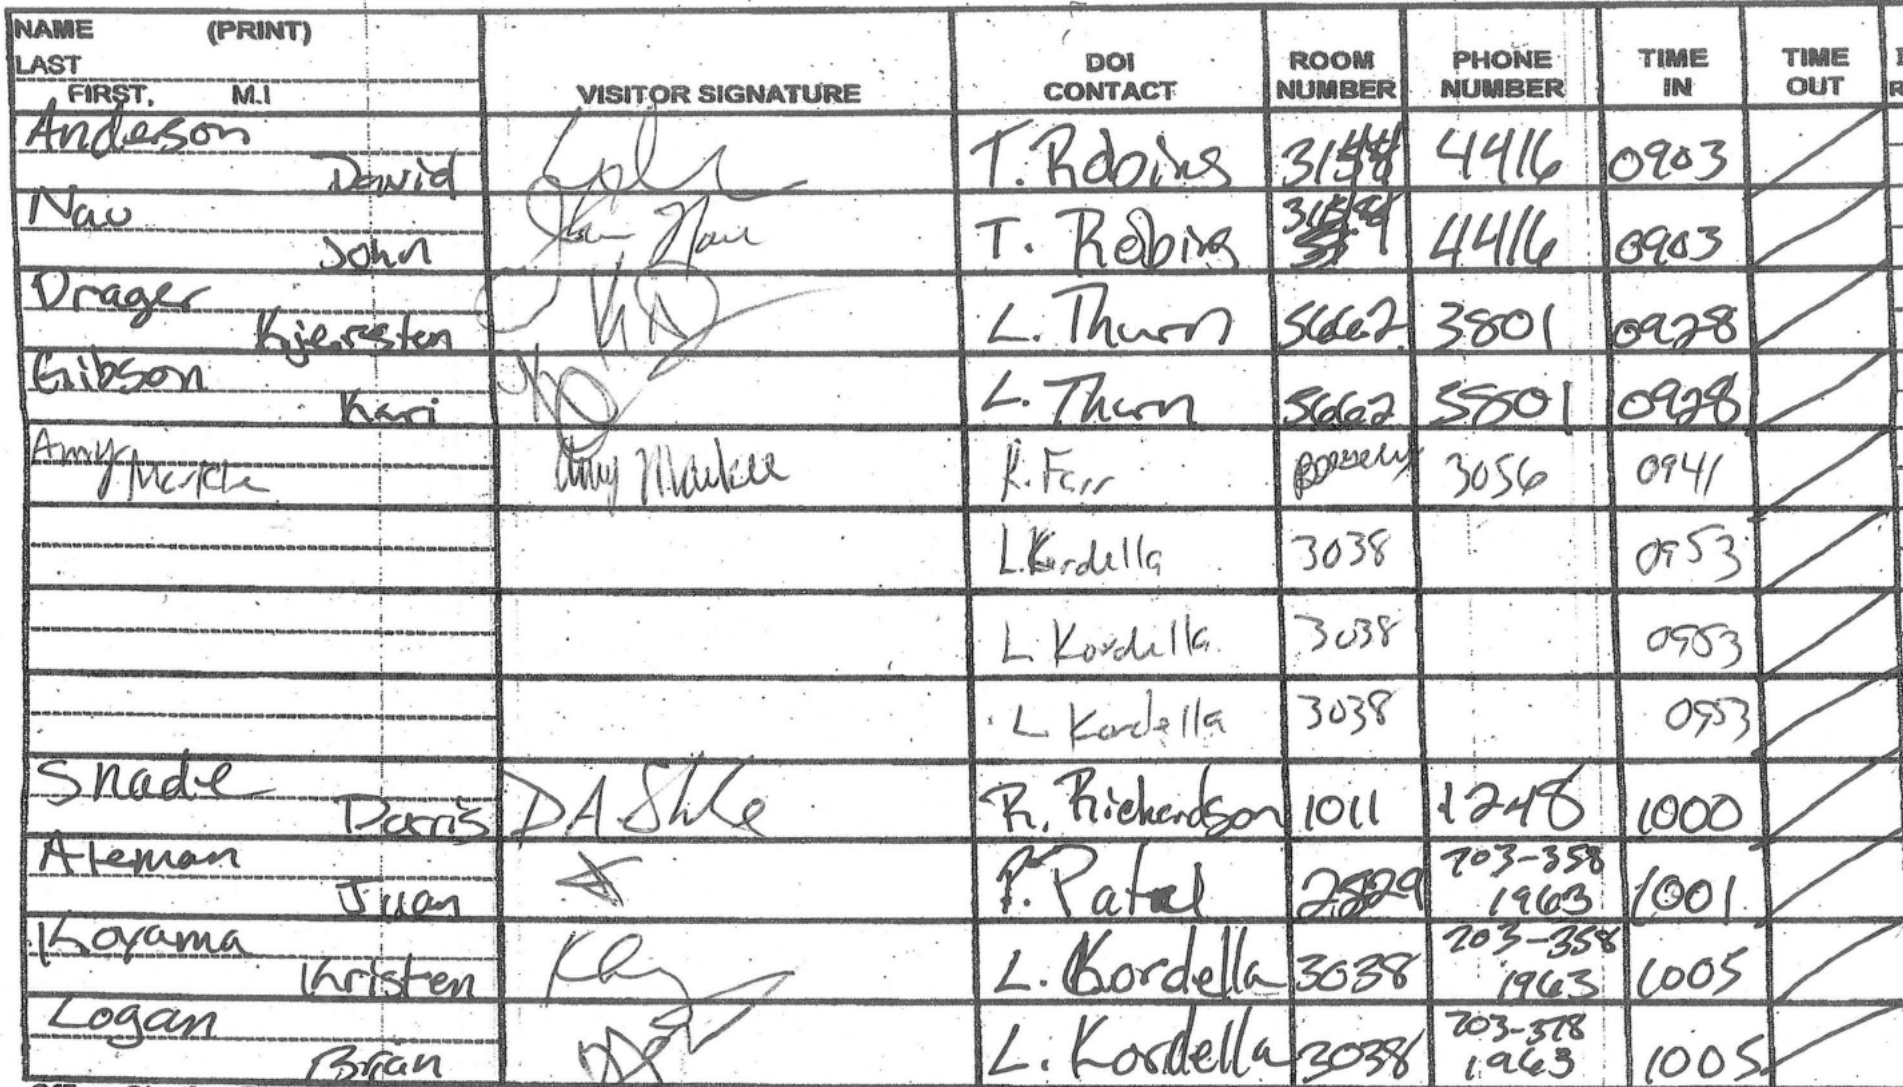 NAME (PRINT)
LAST
FIRST, M.I
VISITOR SIGNATURE
DOI CONTACT
ROOM NUMBER
PHONE NUMBER
TIME IN
TIME OUT
Anderson
David T. Robins 4416 0903
Nau
John John Nau T. Robins 4416 0903
Drager
Kjersten KD L. Thurn 5662 3801 0928
Gibson
Kari KG L. Thurn 5662 3801 0928
Amy
Markle Amy Markle R. Farr 3056 0941
L. Kordella 3038 0953
L. Kordella 3038 0953
L. Kordella 3038 0953
Shade
Dorris DA Shade R. Richardson 1011 1248 1000
Ateman
Juan P. Patel 2529 703-358 1963 1001
Koyama
Kristen L. Kordella 3038 703-358 1963 1005
Logan
Brian L. Kordella 3038 703-378 1963 1005